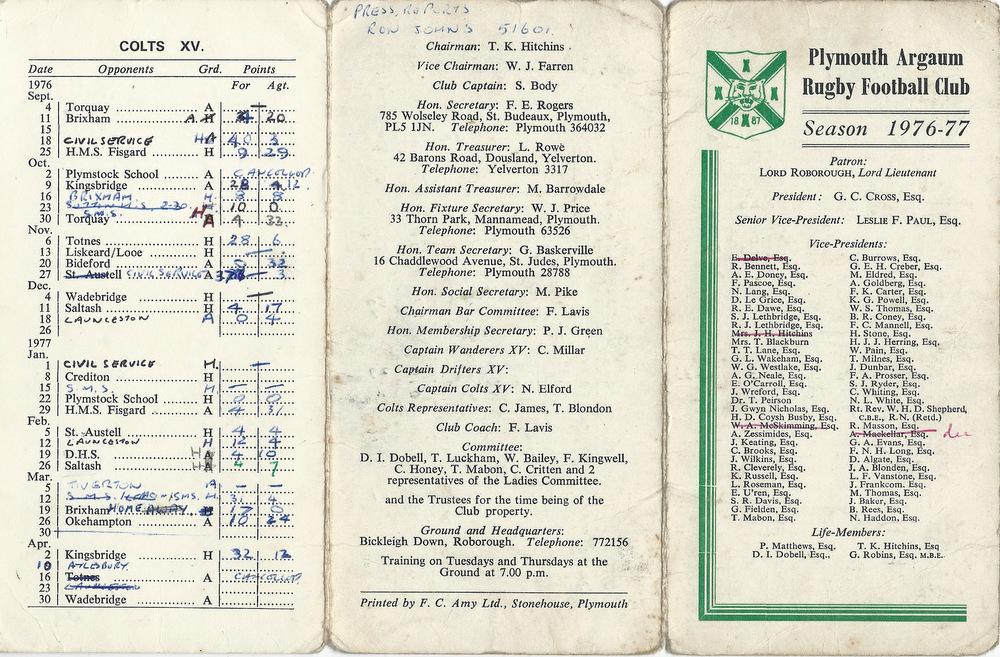 COLTS XV.
Date Opponents Grd. Points
For Agt.
1976
Sept.
4 Torquay A —
11 Brixham A. H 20
15
18 CIVIL SERVICE A 40 3
25 H.M.S. Fisgard H 9 29
Oct.
2 Plymstock School A CANCELLED
9 Kingsbridge A 28 12
16 BRIXHAM H 8 8
23 S.M.S. 2-30 H 10 0
30 Torquay H 4 32
Nov.
6 Totnes H 28 6
13 Liskeard/Looe H —
20 Bideford A 32
27 St. Austell CIVIL SERVICE A 3
Dec.
4 Wadebridge H —
11 Saltash H 4 17
18 LAUNCESTON A 0 4
26
1977
Jan.
1 CIVIL SERVICE H. —
8 Crediton H
15 S.M.S. H — —
22 Plymstock School H 0 0
29 H.M.S. Fisgard A 4 31
Feb.
5 St. Austell H 4 4
12 LAUNCESTON H 12 4
19 D.H.S. H A 4 10
26 Saltash H A 4 7
Mar.
5 TIVERTON A — —
12 S.M.S. H. 31 4
19 Brixham HOME AWAY H 17 0
26 Okehampton A 10 24
30
Apr.
2 Kingsbridge H 32 12
10 AYLESBURY
16 Totnes A CANCELLED
23 LAUNCESTON
30 Wadebridge A
PRESS, REPORTS
RON JOHNS 51601.
Chairman: T. K. Hitchins
Vice Chairman: W. J. Farren
Club Captain: S. Body
Hon. Secretary: F. E. Rogers
785 Wolseley Road, St. Budeaux, Plymouth,
PL5 1JN. Telephone: Plymouth 364032
Hon. Treasurer: L. Rowe
42 Barons Road, Dousland, Yelverton.
Telephone: Yelverton 3317
Hon. Assistant Treasurer: M. Barrowdale
Hon. Fixture Secretary: W. J. Price
33 Thorn Park, Mannamead, Plymouth.
Telephone: Plymouth 63526
Hon. Team Secretary: G. Baskerville
16 Chaddlewood Avenue, St. Judes, Plymouth.
Telephone: Plymouth 28788
Hon. Social Secretary: M. Pike
Chairman Bar Committee: F. Lavis
Hon. Membership Secretary: P. J. Green
Captain Wanderers XV: C. Millar
Captain Drifters XV:
Captain Colts XV: N. Elford
Colts Representatives: C. James, T. Blondon
Club Coach: F. Lavis
Committee:
D. I. Dobell, T. Luckham, W. Bailey, F. Kingwell,
C. Honey, T. Mabon, C. Critten and 2
representatives of the Ladies Committee.
and the Trustees for the time being of the
Club property.
Ground and Headquarters:
Bickleigh Down, Roborough. Telephone: 772156
Training on Tuesdays and Thursdays at the
Ground at 7.00 p.m.
Printed by F. C. Amy Ltd., Stonehouse, Plymouth
1887
Plymouth Argaum
Rugby Football Club
Season 1976-77
Patron:
LORD ROBOROUGH, Lord Lieutenant
President: G. C. CROSS, ESQ.
Senior Vice-President: LESLIE F. PAUL, ESQ.
Vice-Presidents:
E. Delve, Esq.
R. Bennett, Esq.
A. E. Doney, Esq.
F. Pascoe, Esq.
N. Lang, Esq.
D. Le Grice, Esq.
R. E. Dawe, Esq.
S. J. Lethbridge, Esq.
R. J. Lethbridge, Esq.
Mrs. J. H. Hitchins
Mrs. T. Blackburn
T. T. Lane, Esq.
G. L. Wakeham, Esq.
W. G. Westlake, Esq.
A. G. Neale, Esq.
E. O'Carroll, Esq.
J. Wreford, Esq.
Dr. T. Peirson
J. Gwyn Nicholas, Esq.
H. D. Coysh Busby, Esq.
W. A. McSkimming, Esq.
A. Zessimides, Esq.
J. Keating, Esq.
C. Brooks, Esq.
J. Wilkins, Esq.
R. Cleverly, Esq.
K. Russell, Esq.
L. Roseman, Esq.
E. U'ren, Esq.
S. R. Davis, Esq.
G. Fielden, Esq.
T. Mabon, Esq.
C. Burrows, Esq.
G. E. H. Creber, Esq.
M. Eldred, Esq.
A. Goldberg, Esq.
F. K. Carter, Esq.
K. G. Powell, Esq.
W. S. Thomas, Esq.
B. R. Coney, Esq.
F. C. Mannell, Esq.
H. Stone, Esq.
H. J. J. Herring, Esq.
W. Pain, Esq.
T. Milnes, Esq.
J. Dunbar, Esq.
F. A. Prosser, Esq.
S. J. Ryder, Esq.
C. Whiting, Esq.
N. L. White, Esq.
Rt. Rev. W. H. D. Shepherd,
C.B.E., R.N. (Retd.)
R. Masson, Esq.
A. Mackellar, Esq.
G. A. Evans, Esq.
F. N. H. Long, Esq.
D. Algate, Esq.
J. A. Blonden, Esq.
L. F. Vanstone, Esq.
J. Frankcom. Esq.
M. Thomas, Esq.
J. Baker, Esq.
B. Rees, Esq.
N. Haddon, Esq.
Life-Members:
P. Matthews, Esq. T. K. Hitchins, Esq
D. I. Dobell, Esq., G. Robins, Esq. M.B.E.